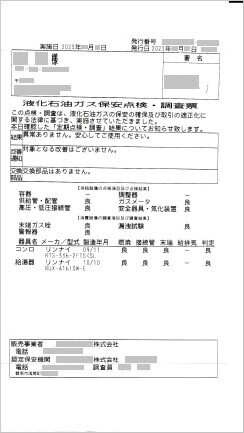 発行番号
実施日 2023年 月 日 発行日 2023年 月 日
様
署名
液化石油ガス保安点検・調査票
この点検・調査は、液化石油ガスの保安の確保及び取引の適正化に
関する法律に基づき、実施させていただきました。
本日確認した「定期点検・調査」結果についてお知らせ致します。
結果 異常ありません。安心してご使用ください。
改善通知 対象となる改善はございません。
交換 交換部品はありません。
容器 － 調整器 －
供給管・配管 良 ガスメータ 良
高圧・低圧接続管 良 安全器具・気化装置 良
末端ガス栓 良 漏洩試験 良
警報器 良
器具名 メーカ/型式 製造年月 燃焼 接続管 末端 給排気 判定
コンロ リンナイ 09/11 良 良 良 － 良
RTS-336-2FTS(SL
給湯器 リンナイ 10/10 良 良 良 － 良
RUX-A1615W-E
販売事業者 株式会社
電話
認定保安機関 株式会社
電話 調査員